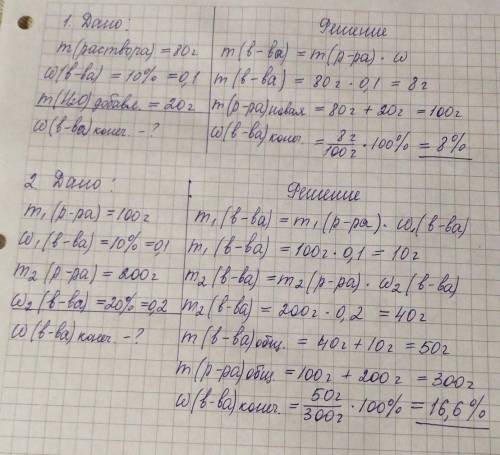 1. Дано:
m(раствора) = 80г
ω(в-ва) = 10% = 0,1
m(H2O) добавл. = 20г
ω(в-ва) конеч. - ?
Решение
m(в-ва) = m(р-ра) · ω
m(в-ва) = 80г · 0,1 = 8г
m(р-ра) новая = 80г + 20г = 100г
ω(в-ва) конеч. = 8г/100г · 100% = 8%
2. Дано:
m1(р-ра) = 100г
ω1(в-ва) = 10% = 0,1
m2(р-ра) = 200г
ω2(в-ва) = 20% = 0,2
ω(в-ва) конеч. - ?
Решение
m1(в-ва) = m1(р-ра) · ω1(в-ва)
m1(в-ва) = 100г · 0,1 = 10г
m2(в-ва) = m2(р-ра) · ω2(в-ва)
m2(в-ва) = 200г · 0,2 = 40г
m(в-ва) общ. = 40г + 10г = 50г
m(р-ра) общ = 100г + 200г = 300г
ω(в-ва) конеч. = 50г/300г · 100% = 16,6%